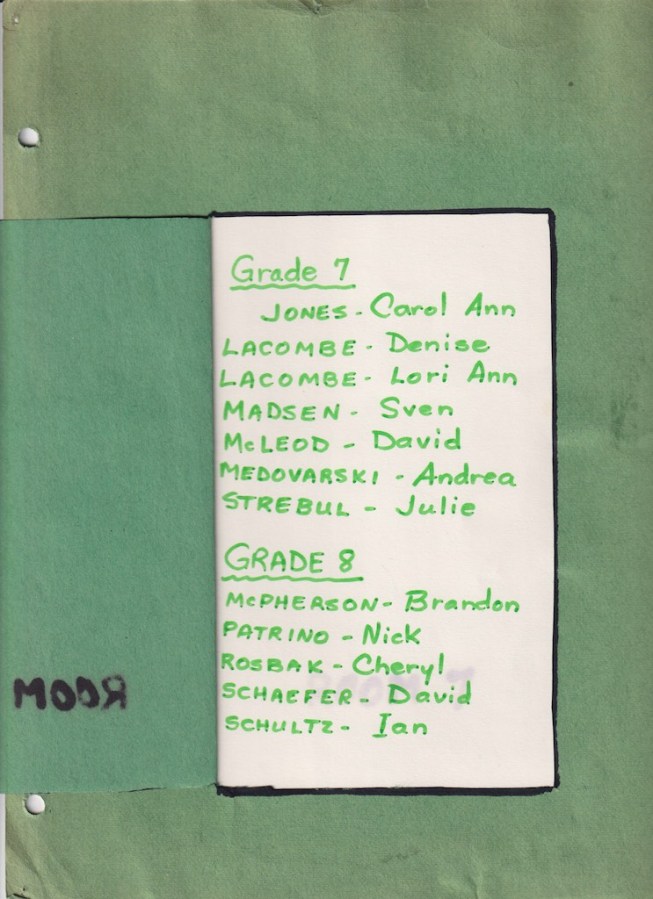 Grade 7
JONES - Carol Ann
LACOMBE - Denise
LACOMBE - Lori Ann
MADSEN - Sven
McLEOD - David
MEDOVARSKI - Andrea
STREBUL - Julie
GRADE 8
McPHERSON - Brandon
PATRINO - Nick
ROSBAK - Cheryl
SCHAEFER - David
SCHULTZ - Ian
ROOM